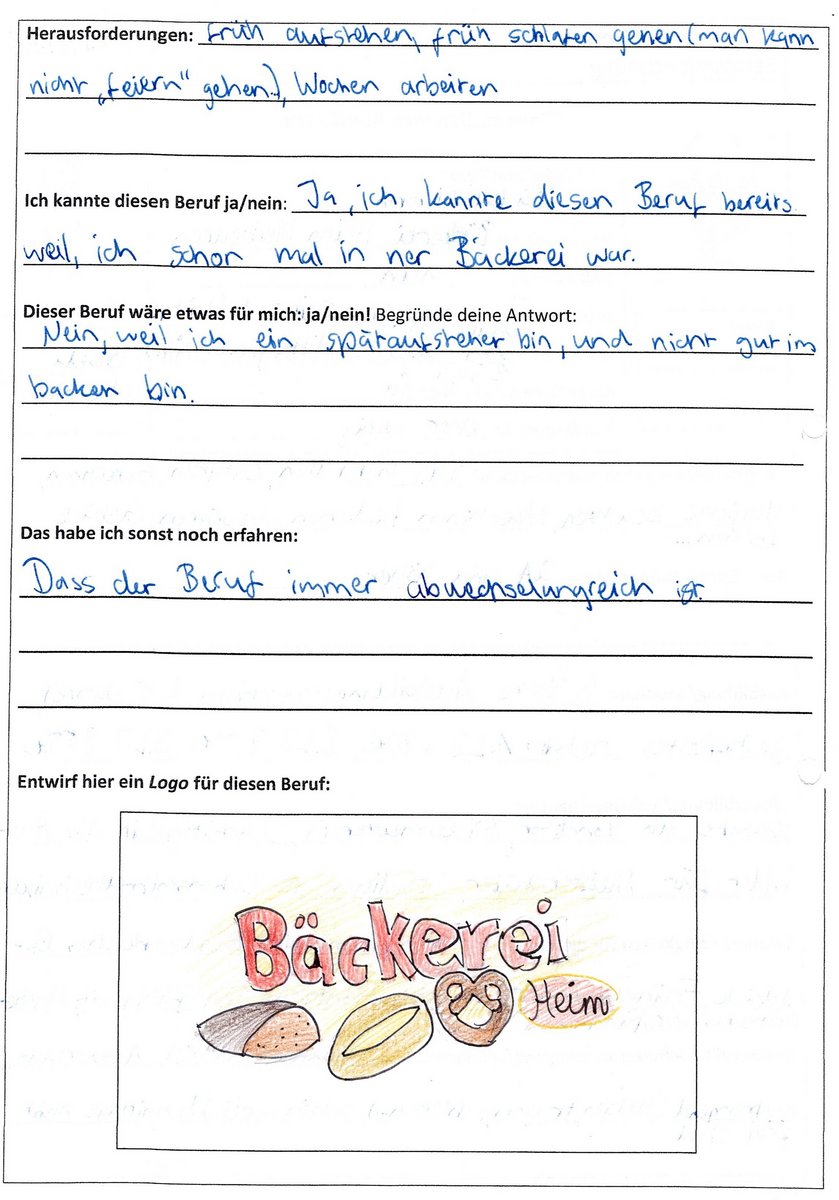 Herausforderungen: früh aufstehen, früh schlafen gehen (man kann
nicht „feiern" gehen.), Wochen arbeiten
Ich kannte diesen Beruf ja/nein: Ja, ich, kannte diesen Beruf bereits
weil, ich schon mal in ner Bäckerei war.
Dieser Beruf wäre etwas für mich: ja/nein! Begründe deine Antwort:
Nein, weil ich ein spätaufsteher bin, und nicht gut im
backen bin.
Das habe ich sonst noch erfahren:
Dass der Beruf immer abwechselungreich ist.
Entwirf hier ein Logo für diesen Beruf:
Bäckerei
Heim